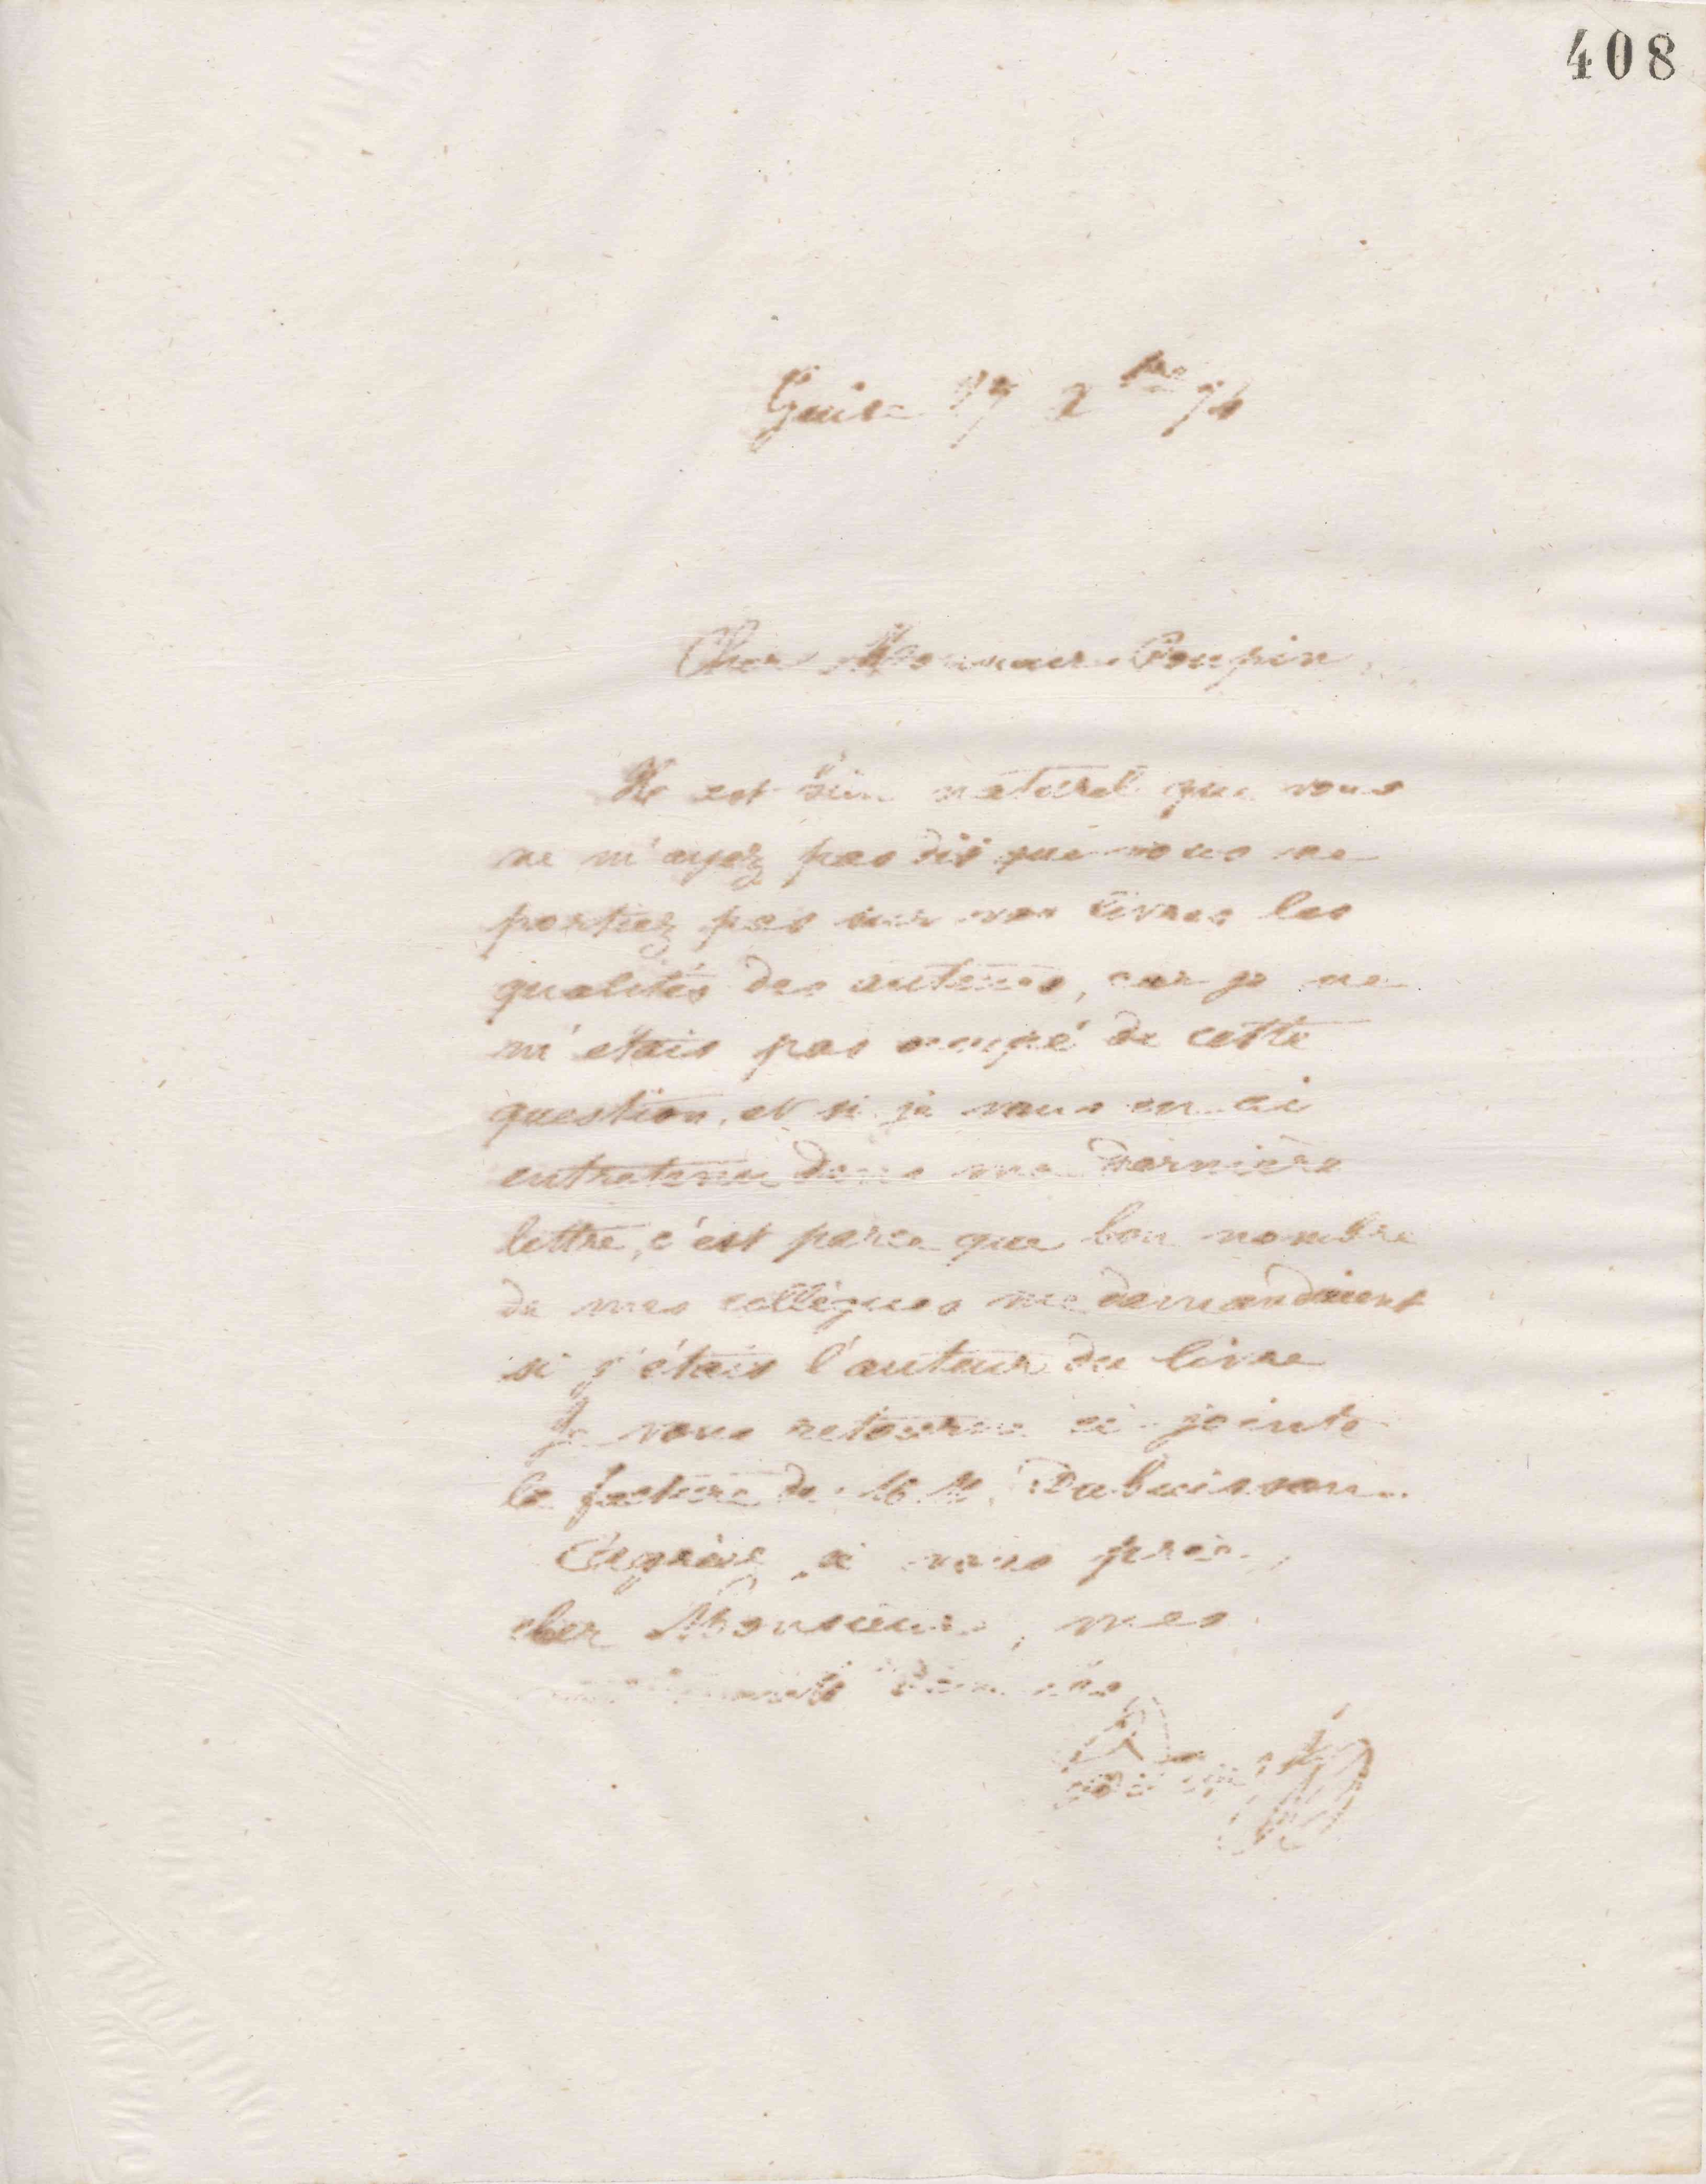 408
Guise 17 bre 74
Cher Monsieur Poupin
Il est bien naturel que vous
ne m'ayez pas dit que vous ne
portiez pas sur vos livres les
qualités des auteurs, car je ne
m'étais pas occupé de cette
question, et si je vous en ai
entretenu dans ma dernière
lettre, c'est parce que bon nombre
de mes collègues me demandaient
si j'étais l'auteur du livre
Je vous retourne ci-jointe
la facture de MM. Dubuisson.
Agréez, je vous prie,
cher Monsieur, mes